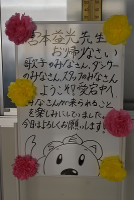 宮本益光先生
お帰りなさい
歌手のみなさん、ダンサー
のみなさん、スタッフのみなさん
ようこそ!愛宕中へ
みなさんが来られること
を楽しみにしていました。
今日はよろしくお願いします!!